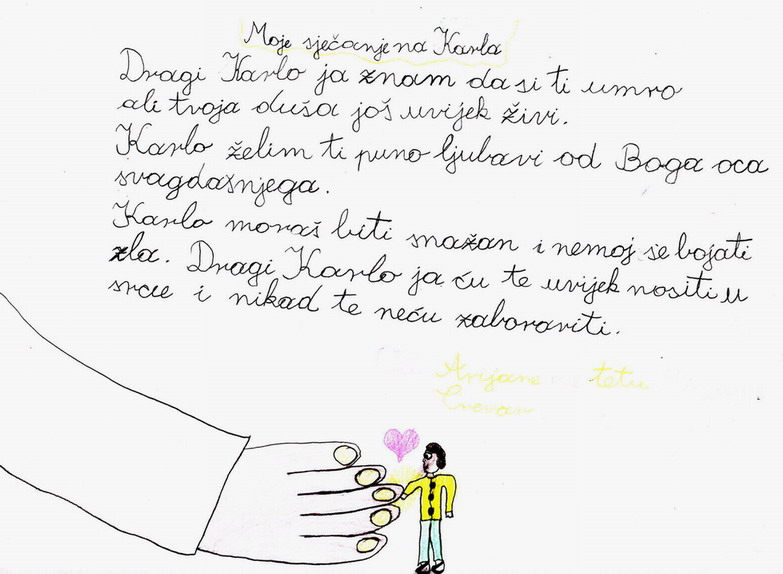 Moje sjećanje na Karla
Dragi Karlo ja znam da si ti umro
ali tvoja duša još uvijek živi.
Karlo želim ti puno ljubavi od Boga oca
svagdašnjega.
Karlo moraš biti snažan i nemoj se bojati
zla. Dragi Karlo ja ću te uvijek nositi u
srcu i nikad te neću zaboraviti.